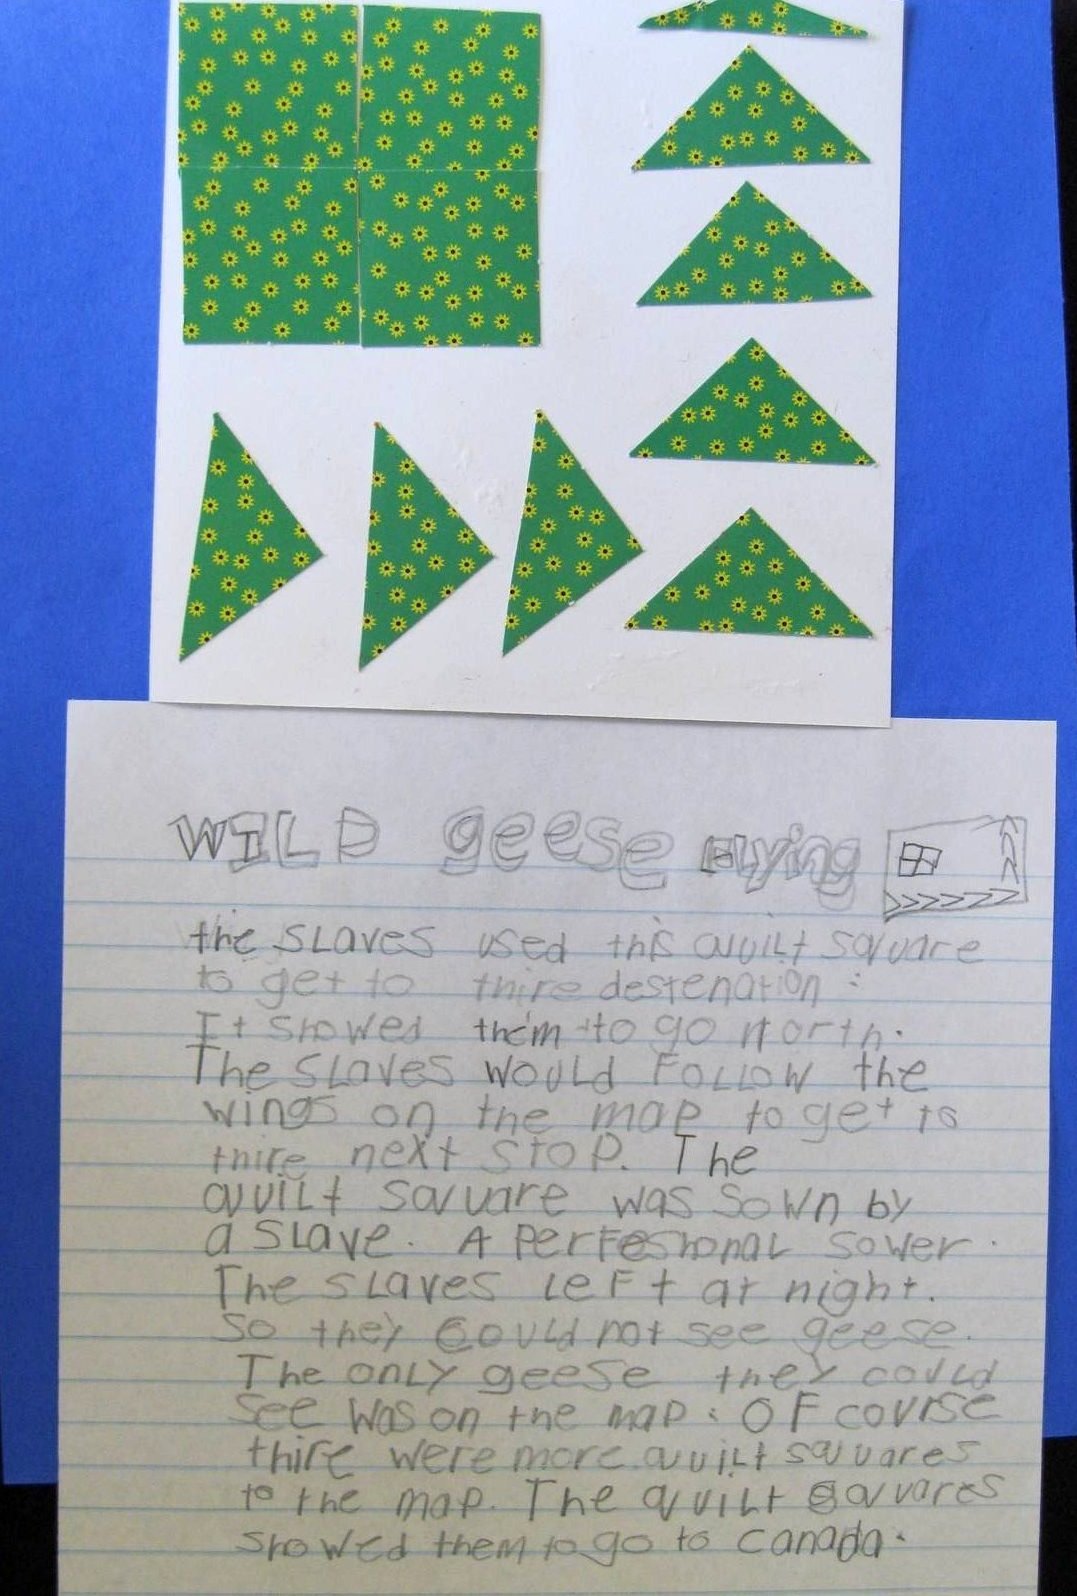 WILD geese FLying
the sLaves used this quiLt square
to get to thire destenation.
It showed them to go north.
The sLaves wouLd FoLLow the
wings on the map to get to
thire next stop. The
quiLt square was sown by
a sLave. A perfesionaL sower.
The sLaves LeFt at night.
so they could not see geese.
The onLy geese they could
see was on the map. OF course
thire were more quiLt squares
to the map. The quiLt squares
showed them to go to canada.